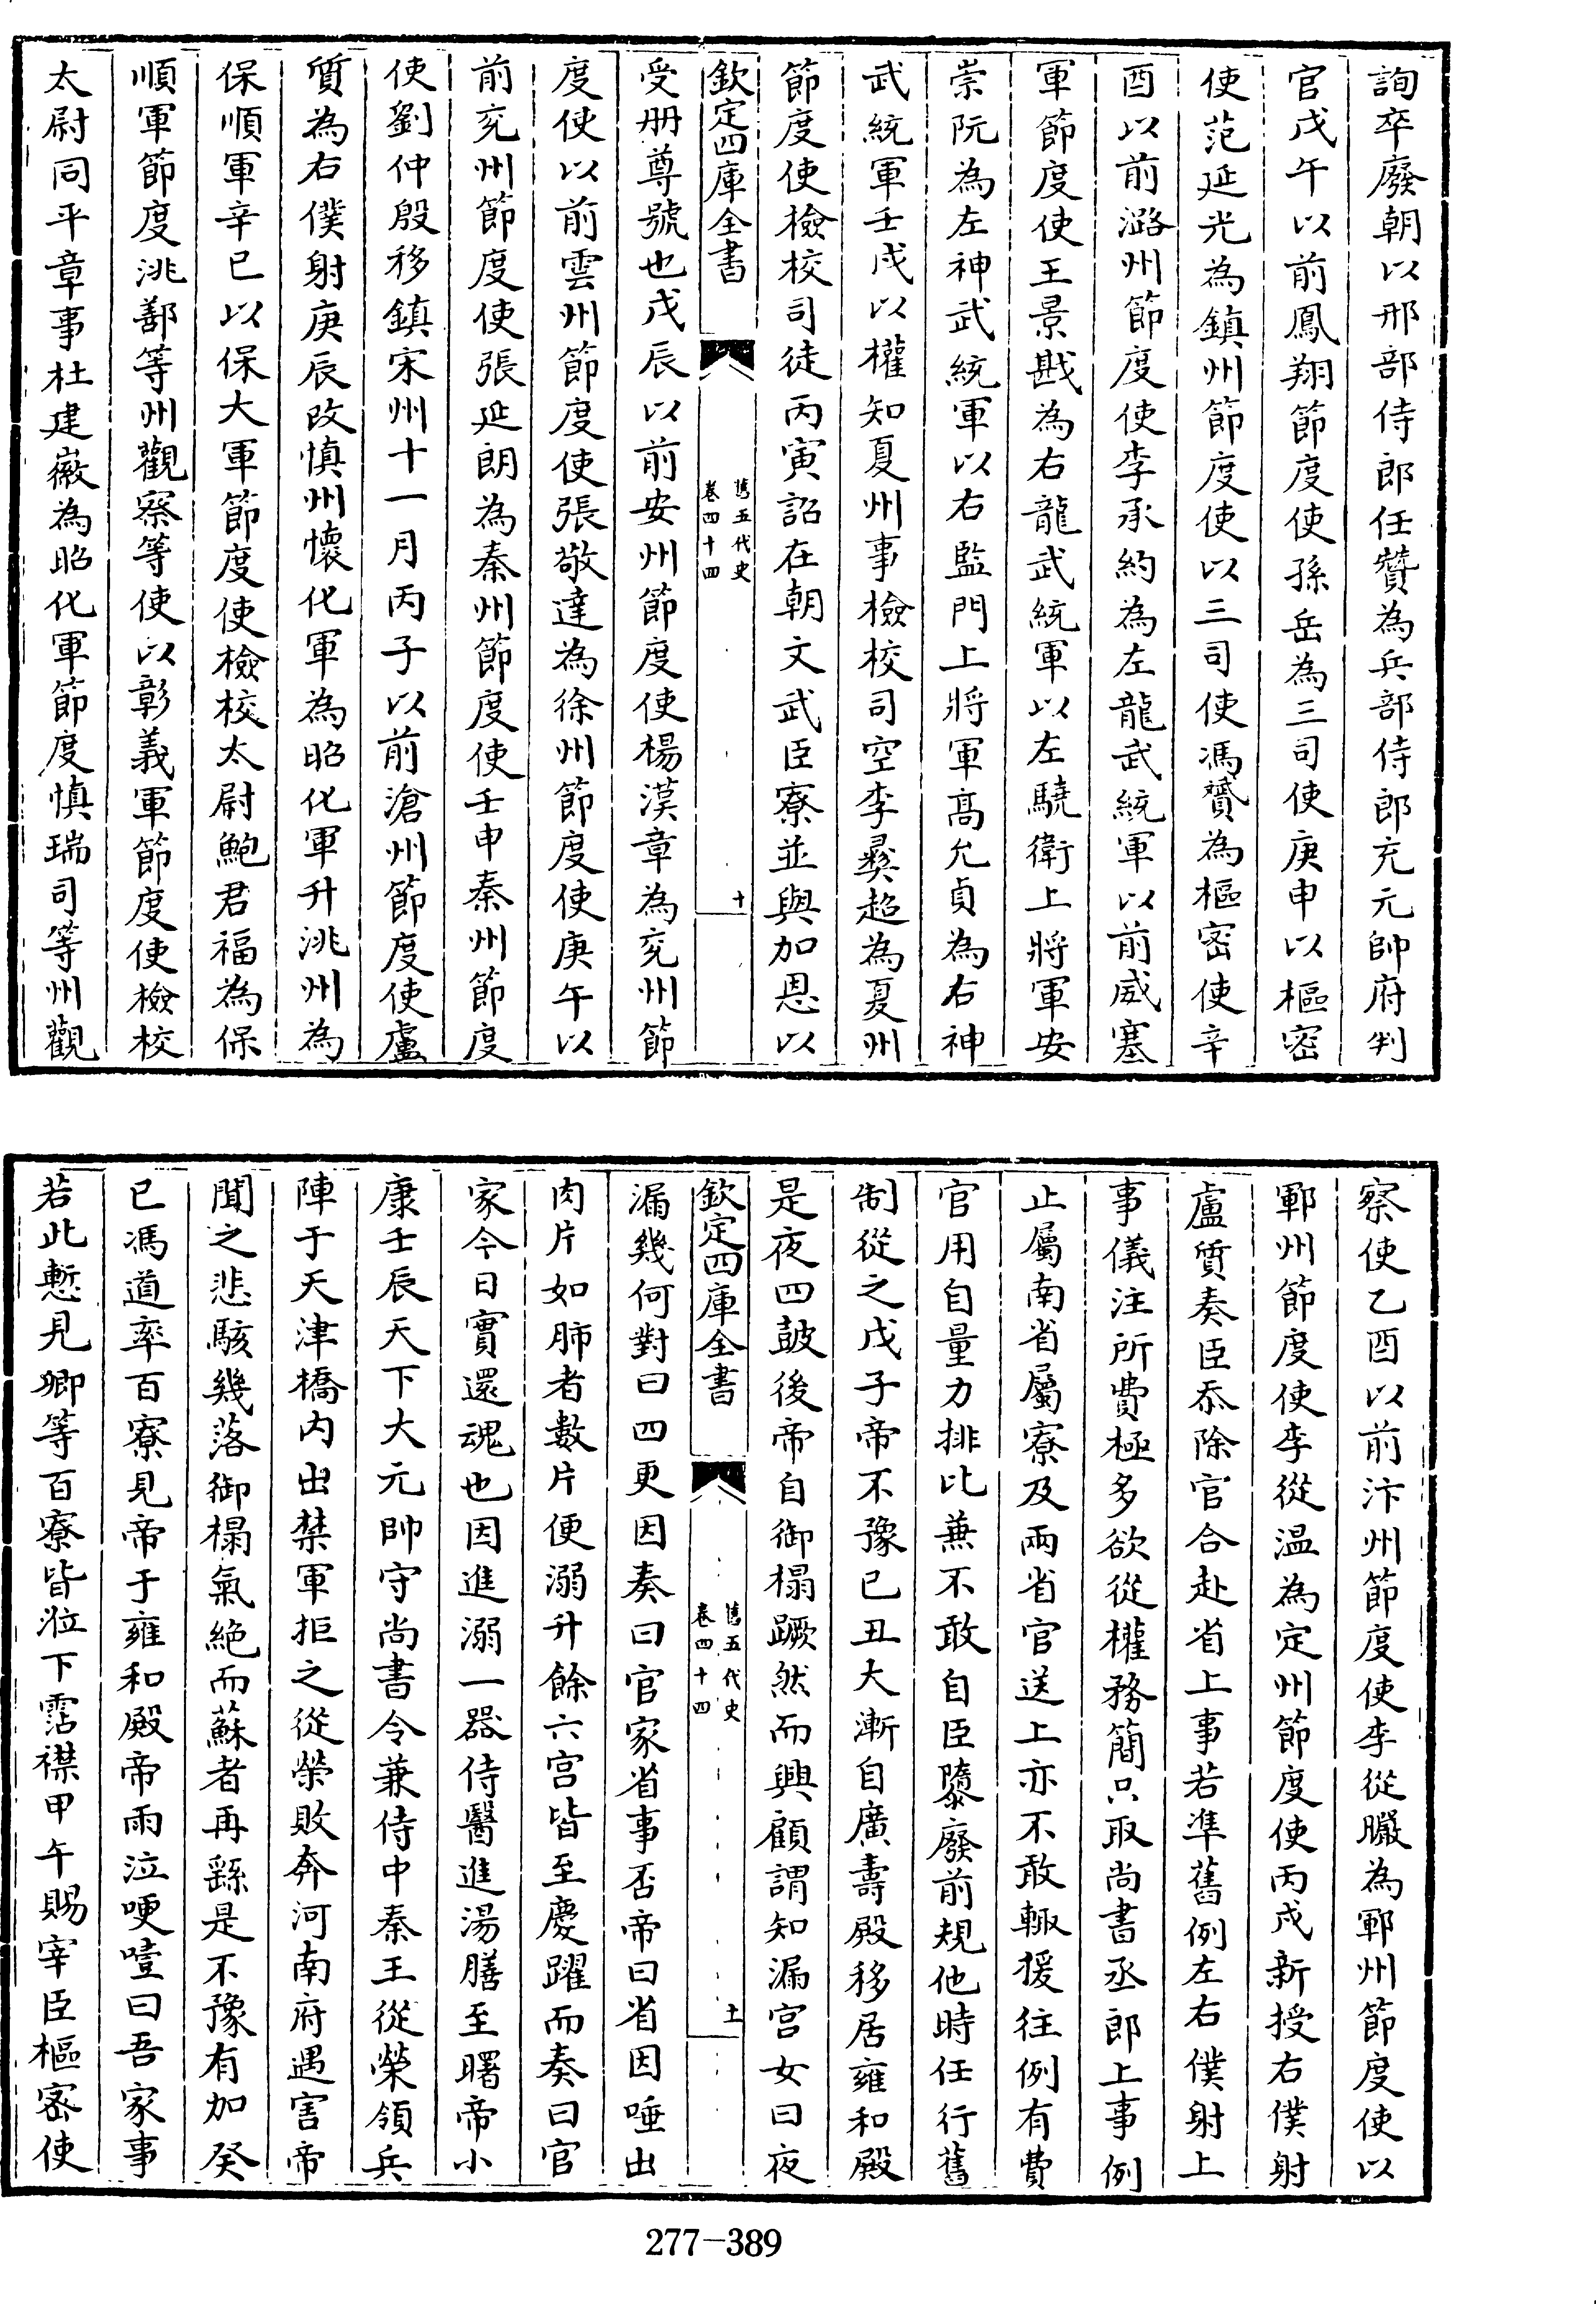 詢卒廢朝以邢部侍郎任贊為兵部侍郎充元帥府判
官戊午以前鳳翔節度使孫岳為三司使庚申以樞密
使范延光為鎮州節度使以三司使馮贇為樞密使辛
酉以前潞州節度使李承約為左龍武統軍以前威塞
軍節度使王景戡為右龍武統軍以左驍衛上將軍安
崇阮為左神武統軍以右監門上將軍高允貞為右神
武統軍壬戌以權知夏州事檢校司空李彞超為夏州
節度使檢校司徒丙寅詔在朝文武臣寮並與加恩以
欽定四庫全書
舊五代史
卷四十四
十
受册尊號也戊辰以前安州節度使楊漢章為兗州節
度使以前雲州節度使張敬達為徐州節度使庚午以
前兗州節度使張延朗為秦州節度使壬申秦州節度
使劉仲殷移鎮宋州十一月丙子以前滄州節度使盧
質為右僕射庚辰改慎州懷化軍為昭化軍升洮州為
保順軍辛巳以保大軍節度使檢校太尉鮑君福為保
順軍節度洮鄯等州觀察等使以彰義軍節度使檢校
太尉同平章事杜建徽為昭化軍節度慎瑞司等州觀
察使乙酉以前汴州節度使李從曮為鄆州節度使以
鄆州節度使李從温為定州節度使丙戌新授右僕射
盧質奏臣忝除官合赴省上事若準舊例左右僕射上
事儀注所費極多欲從權務簡只取尚書丞郎上事例
止屬南省屬寮及兩省官送上亦不敢輙援往例有費
官用自量力排比兼不敢自臣隳廢前規他時任行舊
制從之戊子帝不豫已丑大漸自廣壽殿移居雍和殿
是夜四鼓後帝自御榻蹶然而興顧謂知漏宫女曰夜
欽定四庫全書
舊五代史
卷四十四
十一
漏幾何對曰四更因奏曰官家省事否帝曰省因唾出
肉片如肺者數片便溺升餘六宫皆至慶躍而奏曰官
家今日實還魂也因進溺一器侍醫進湯膳至曙帝小
康壬辰天下大元帥守尚書令兼侍中秦王從榮領兵
陣于天津橋内出禁軍拒之從榮敗奔河南府遇害帝
聞之悲駭幾落御榻氣絶而蘇者再繇是不豫有加癸
已馮道率百寮見帝于雍和殿帝雨泣哽噎曰吾家事
若此慙見卿等百寮皆泣下霑襟甲午賜宰臣樞密使
277-389